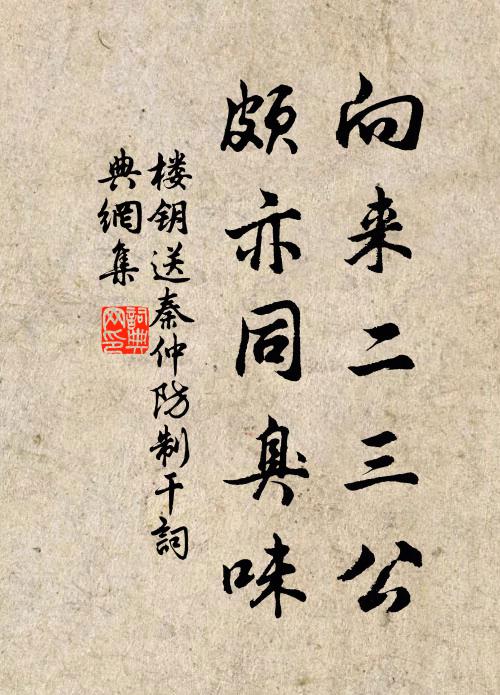 向来二三公
颇亦同臭味
楼钥送秦仲防制干詞
典網集
詞典
网印